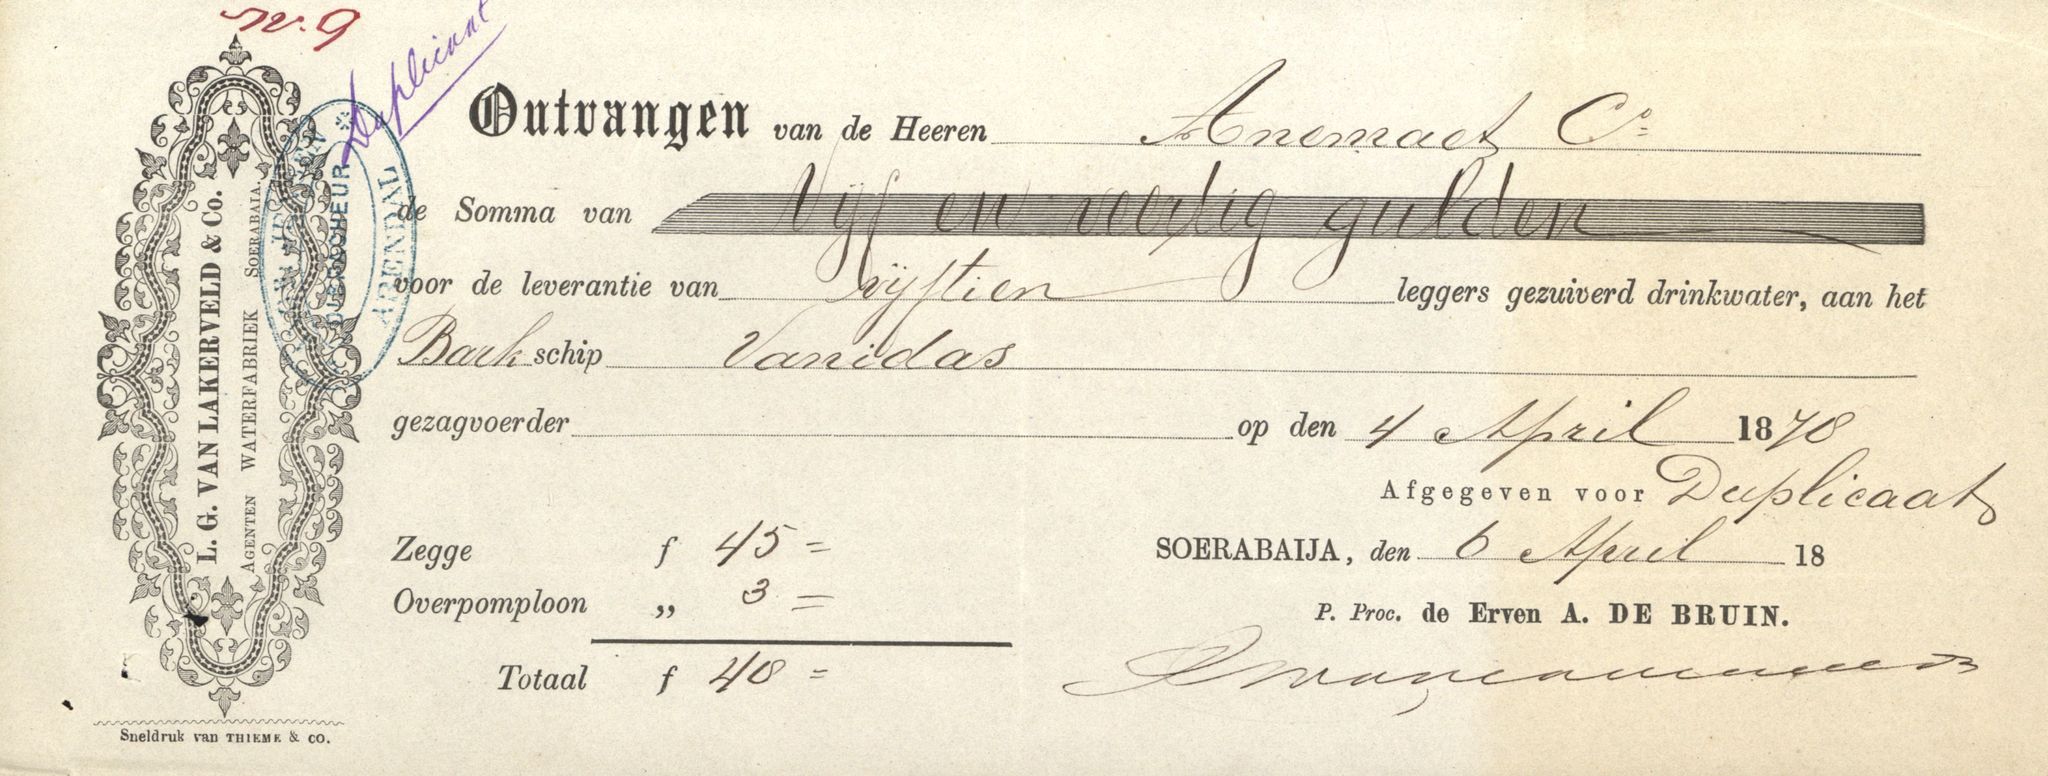 N. 9
Duplicaat
L. G. VAN LAKERVELD & Co.
AGENTEN WATERFABRIEK SOERABAIJA.
ARENDAL
Ontvangen van de Heeren Anemaet Co.
de Somma van Vijf en veertig gulden
voor de leverantie van vijftien leggers gezuiverd drinkwater, aan het
Bark schip Vanidas
gezagvoerder op den 4 April 1878
Afgegeven voor Duplicaat
Zegge f 45 =
SOERABAIJA, den 6 April 18
Overpomploon „ 3 =
P. Proc. de Erven A. DE BRUIN.
Totaal f 48 =
Sneldruk van THIEME & CO.